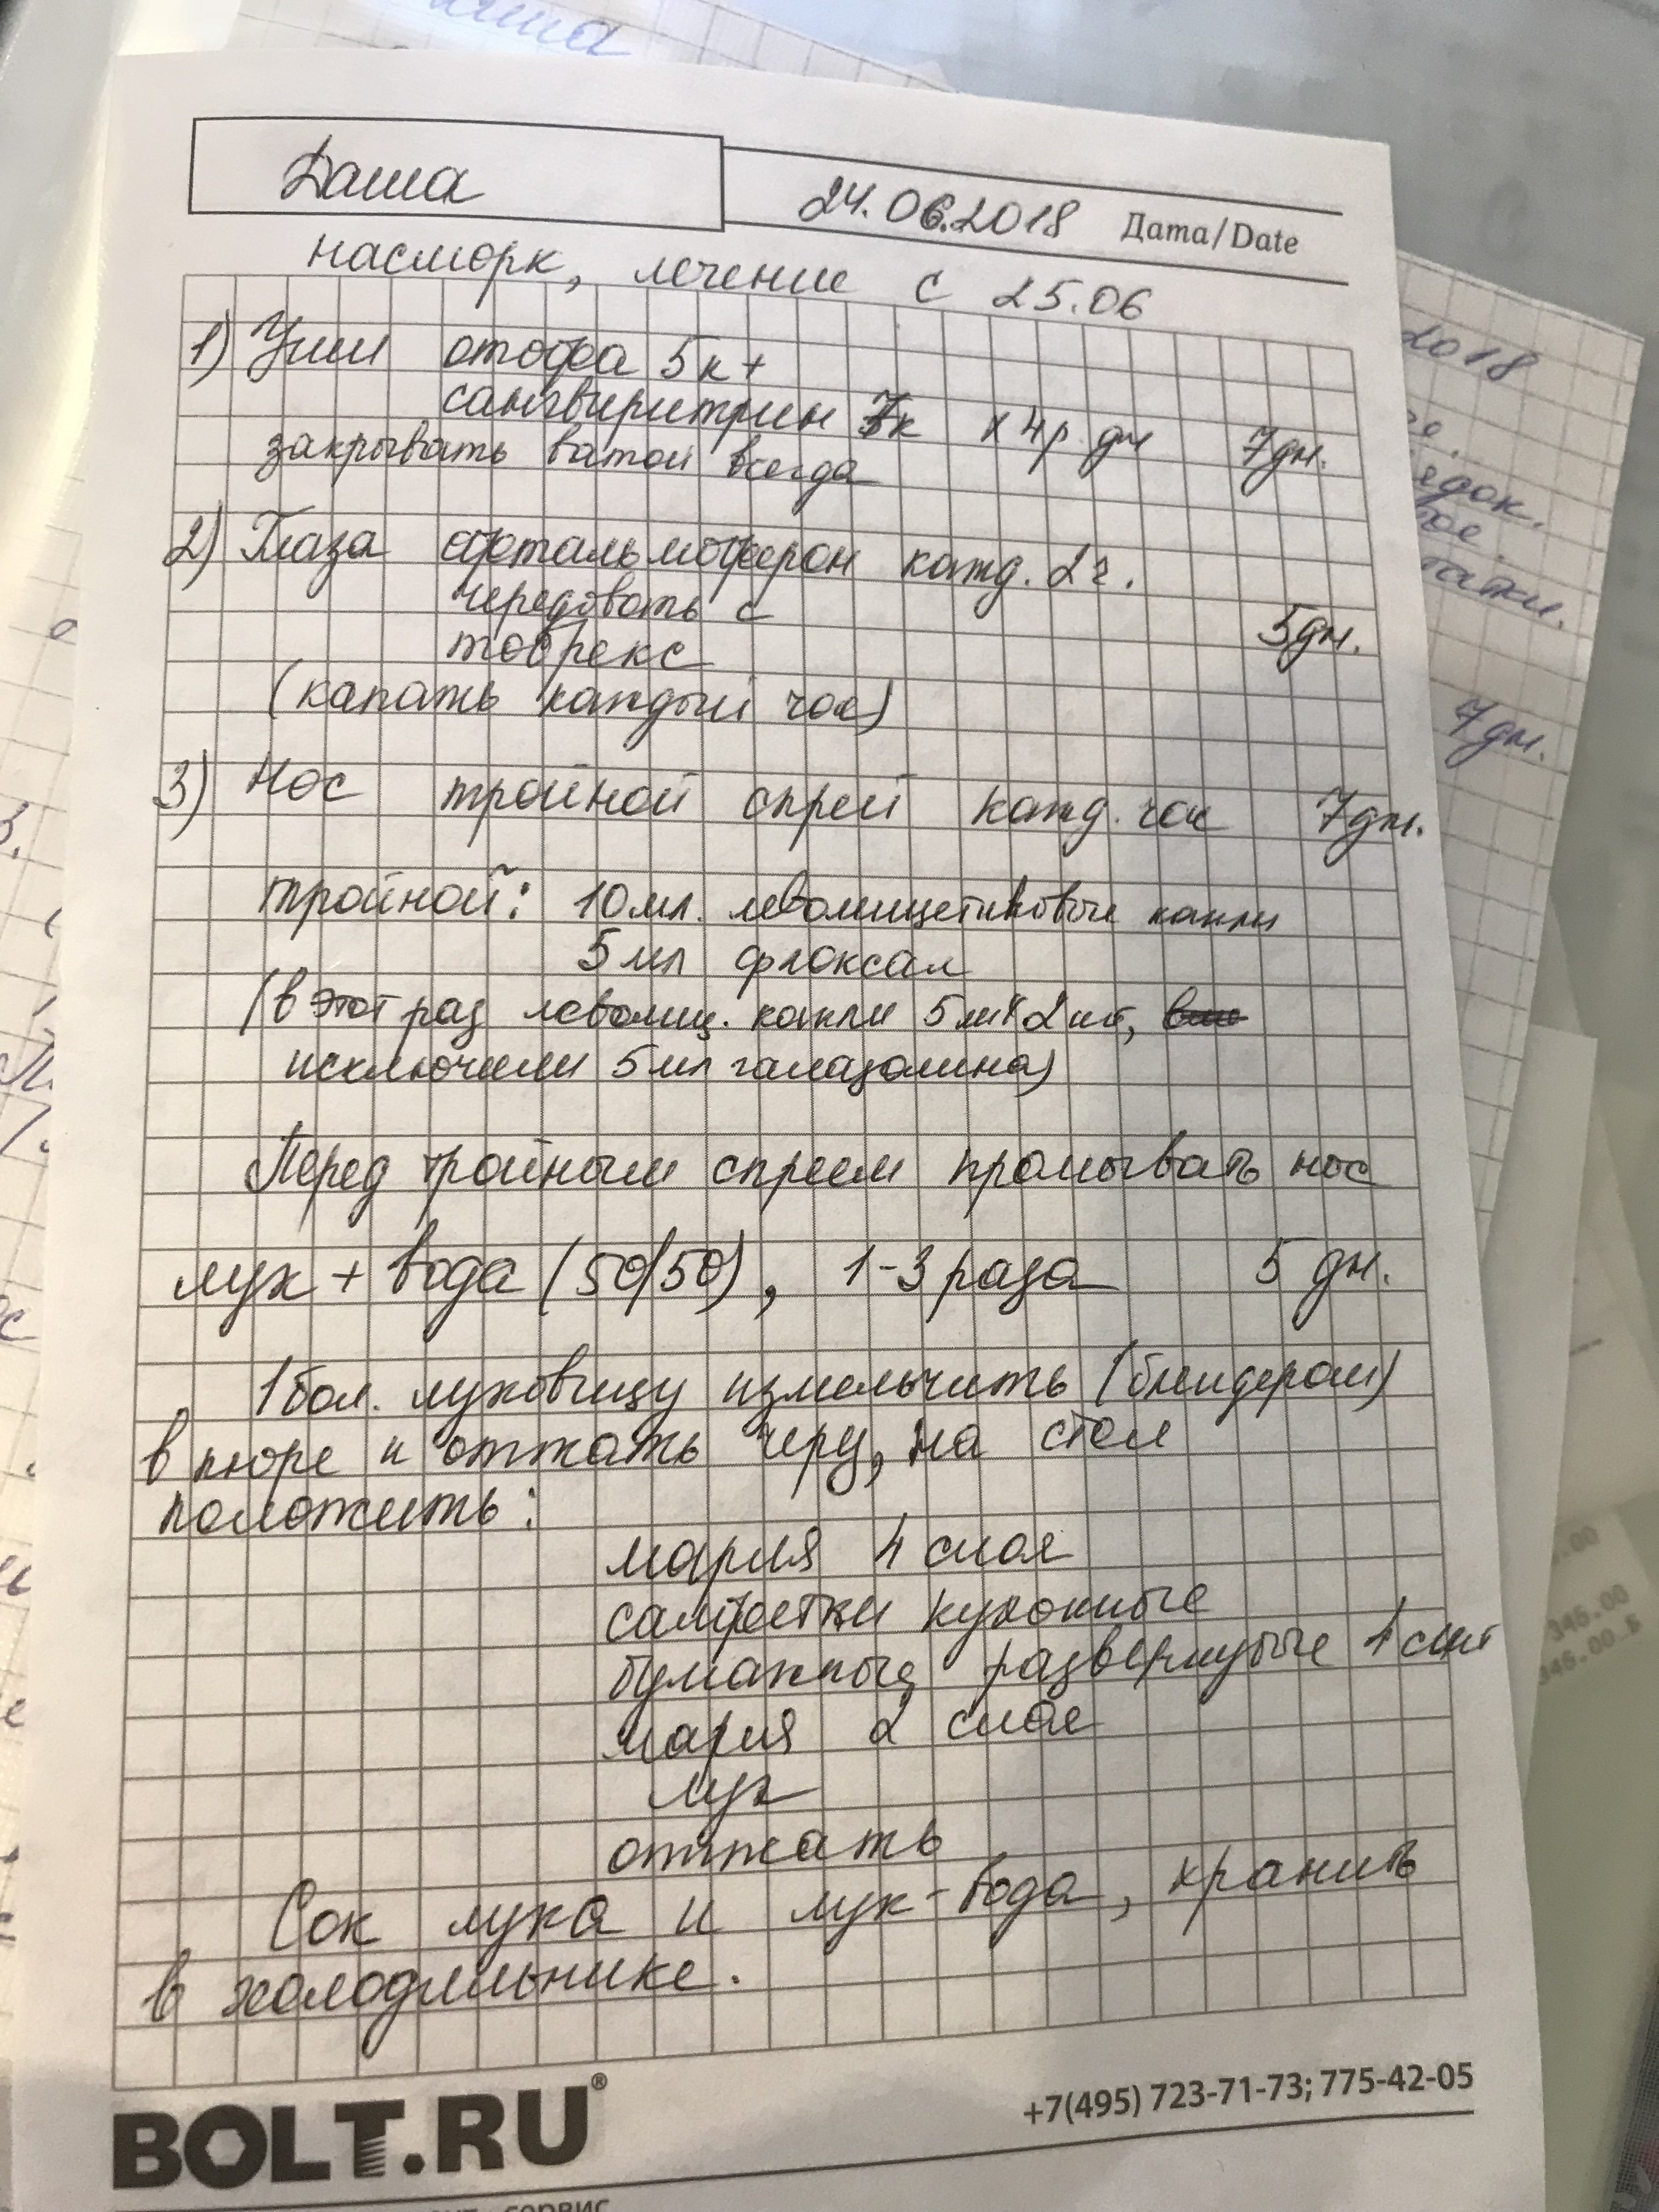 Даша
24.06.2018 Дата/Date
насморк, лечение с 25.06
1) Уши отофа 5к+
сангвиритрин 7к х 4р. дн 7дн.
закрывать ватой всегда
2) Глаза офтальмоферон кажд. 2ч.
чередовать с
тобрекс 5дн.
(капать каждый час)
3) Нос тройной спрей кажд. час 7дн.
тройной: 10мл. левомицетиновые капли
5мл флоксал
(в этот раз левомиц. капли 5мл 2шт,
исключили 5мл галазолина)
Перед тройным спреем промывать нос
лук + вода (50/50), 1-3 раза 5 дн.
1 бол. луковицу измельчить (блендером)
в пюре и отжать через, на стол
положить:
марля 4 слоя
салфетки кухонные
бумажные развернутые 1
марля 2 слоя
лук
отжать
Сок лука и лук-вода, хранить
в холодильнике.
BOLT.RU®
+7(495) 723-71-73; 775-42-05
сервис
2018
7дн.
346.00
346.00